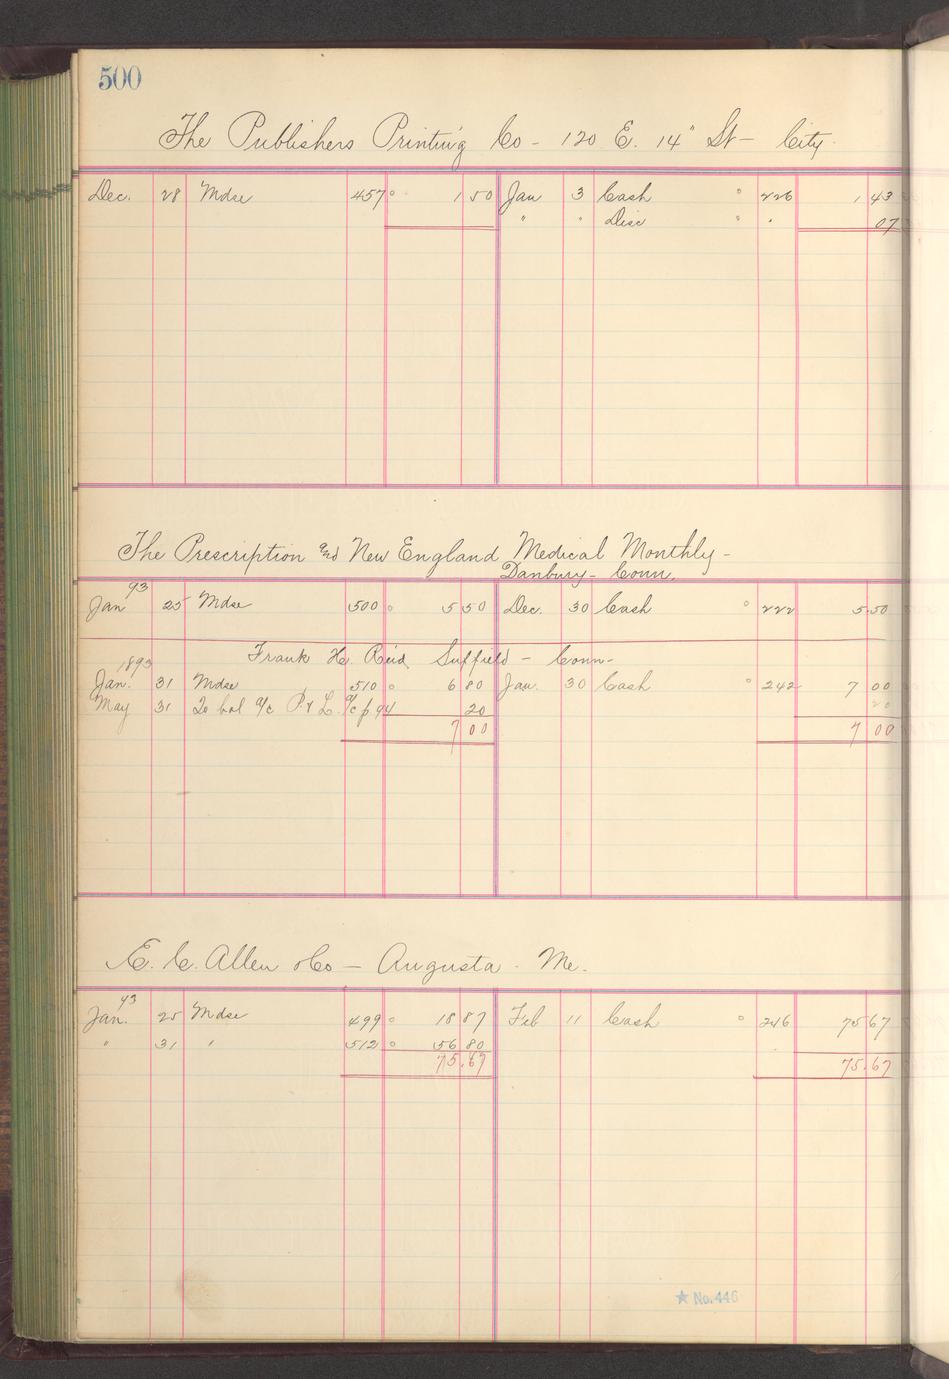 500
The Publishers Printing Co - 120 E. 14" St - City
Dec. 28 Mdse 457 1 50 Jan 3 Cash 226 1 43
" " Disc " " 07
The Prescription and New England Medical Monthly -
Danbury - Conn.
93
Jan 25 Mdse 500 5 50 Dec. 30 Cash 222 5.50
Frank H. Reid Suffield - Conn -
1893
Jan. 31 Mdse 510 6 80 Jan. 30 Cash 242 7 00
May 31 To bal a/c P & L. a/c p 94 20
7 00 7 00
E. C. Allen & Co - Augusta - Me.
93
Jan. 25 Mdse 499 18 87 Feb 11 Cash 246 75 67
" 31 " 512 56 80
75.67 75.67
★ No. 446